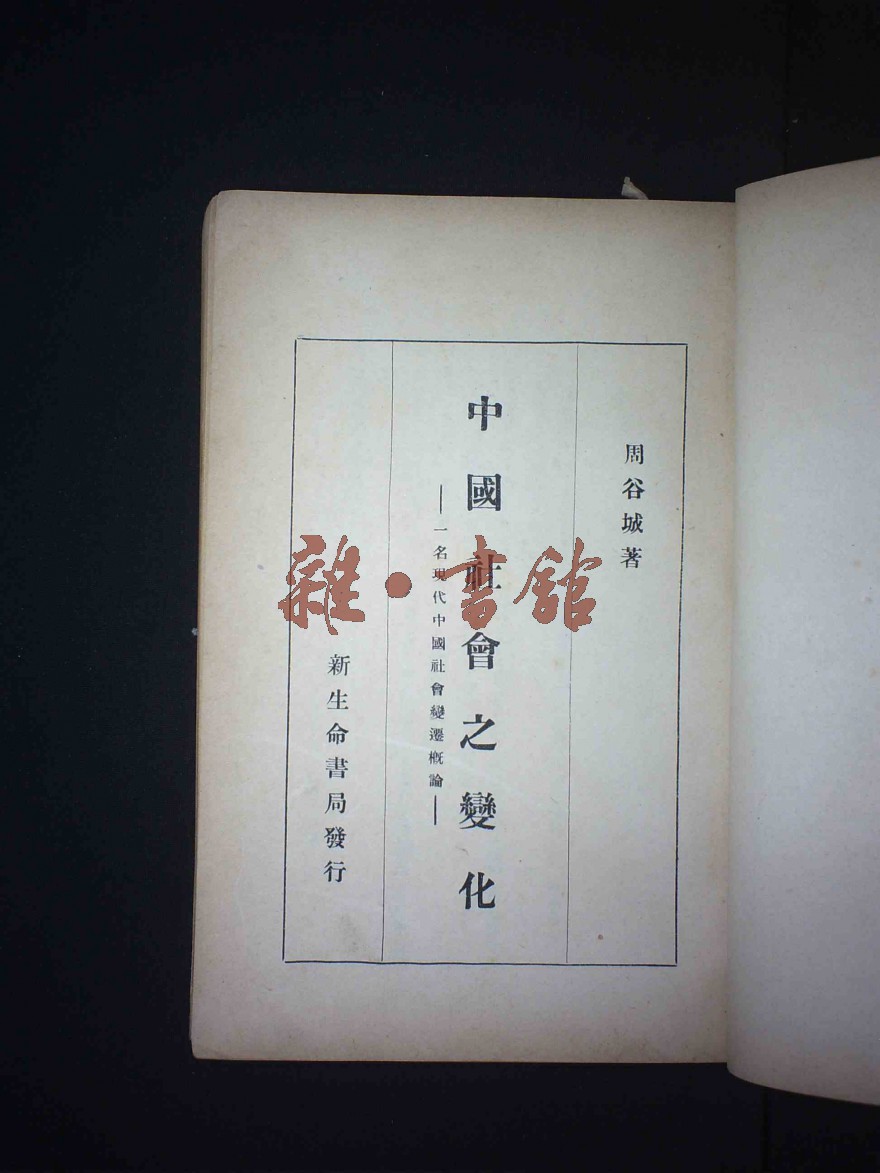 周谷城著
中國社會之變化
—一名現代中國社會變遷概論—
新生命書局發行
雜·書館